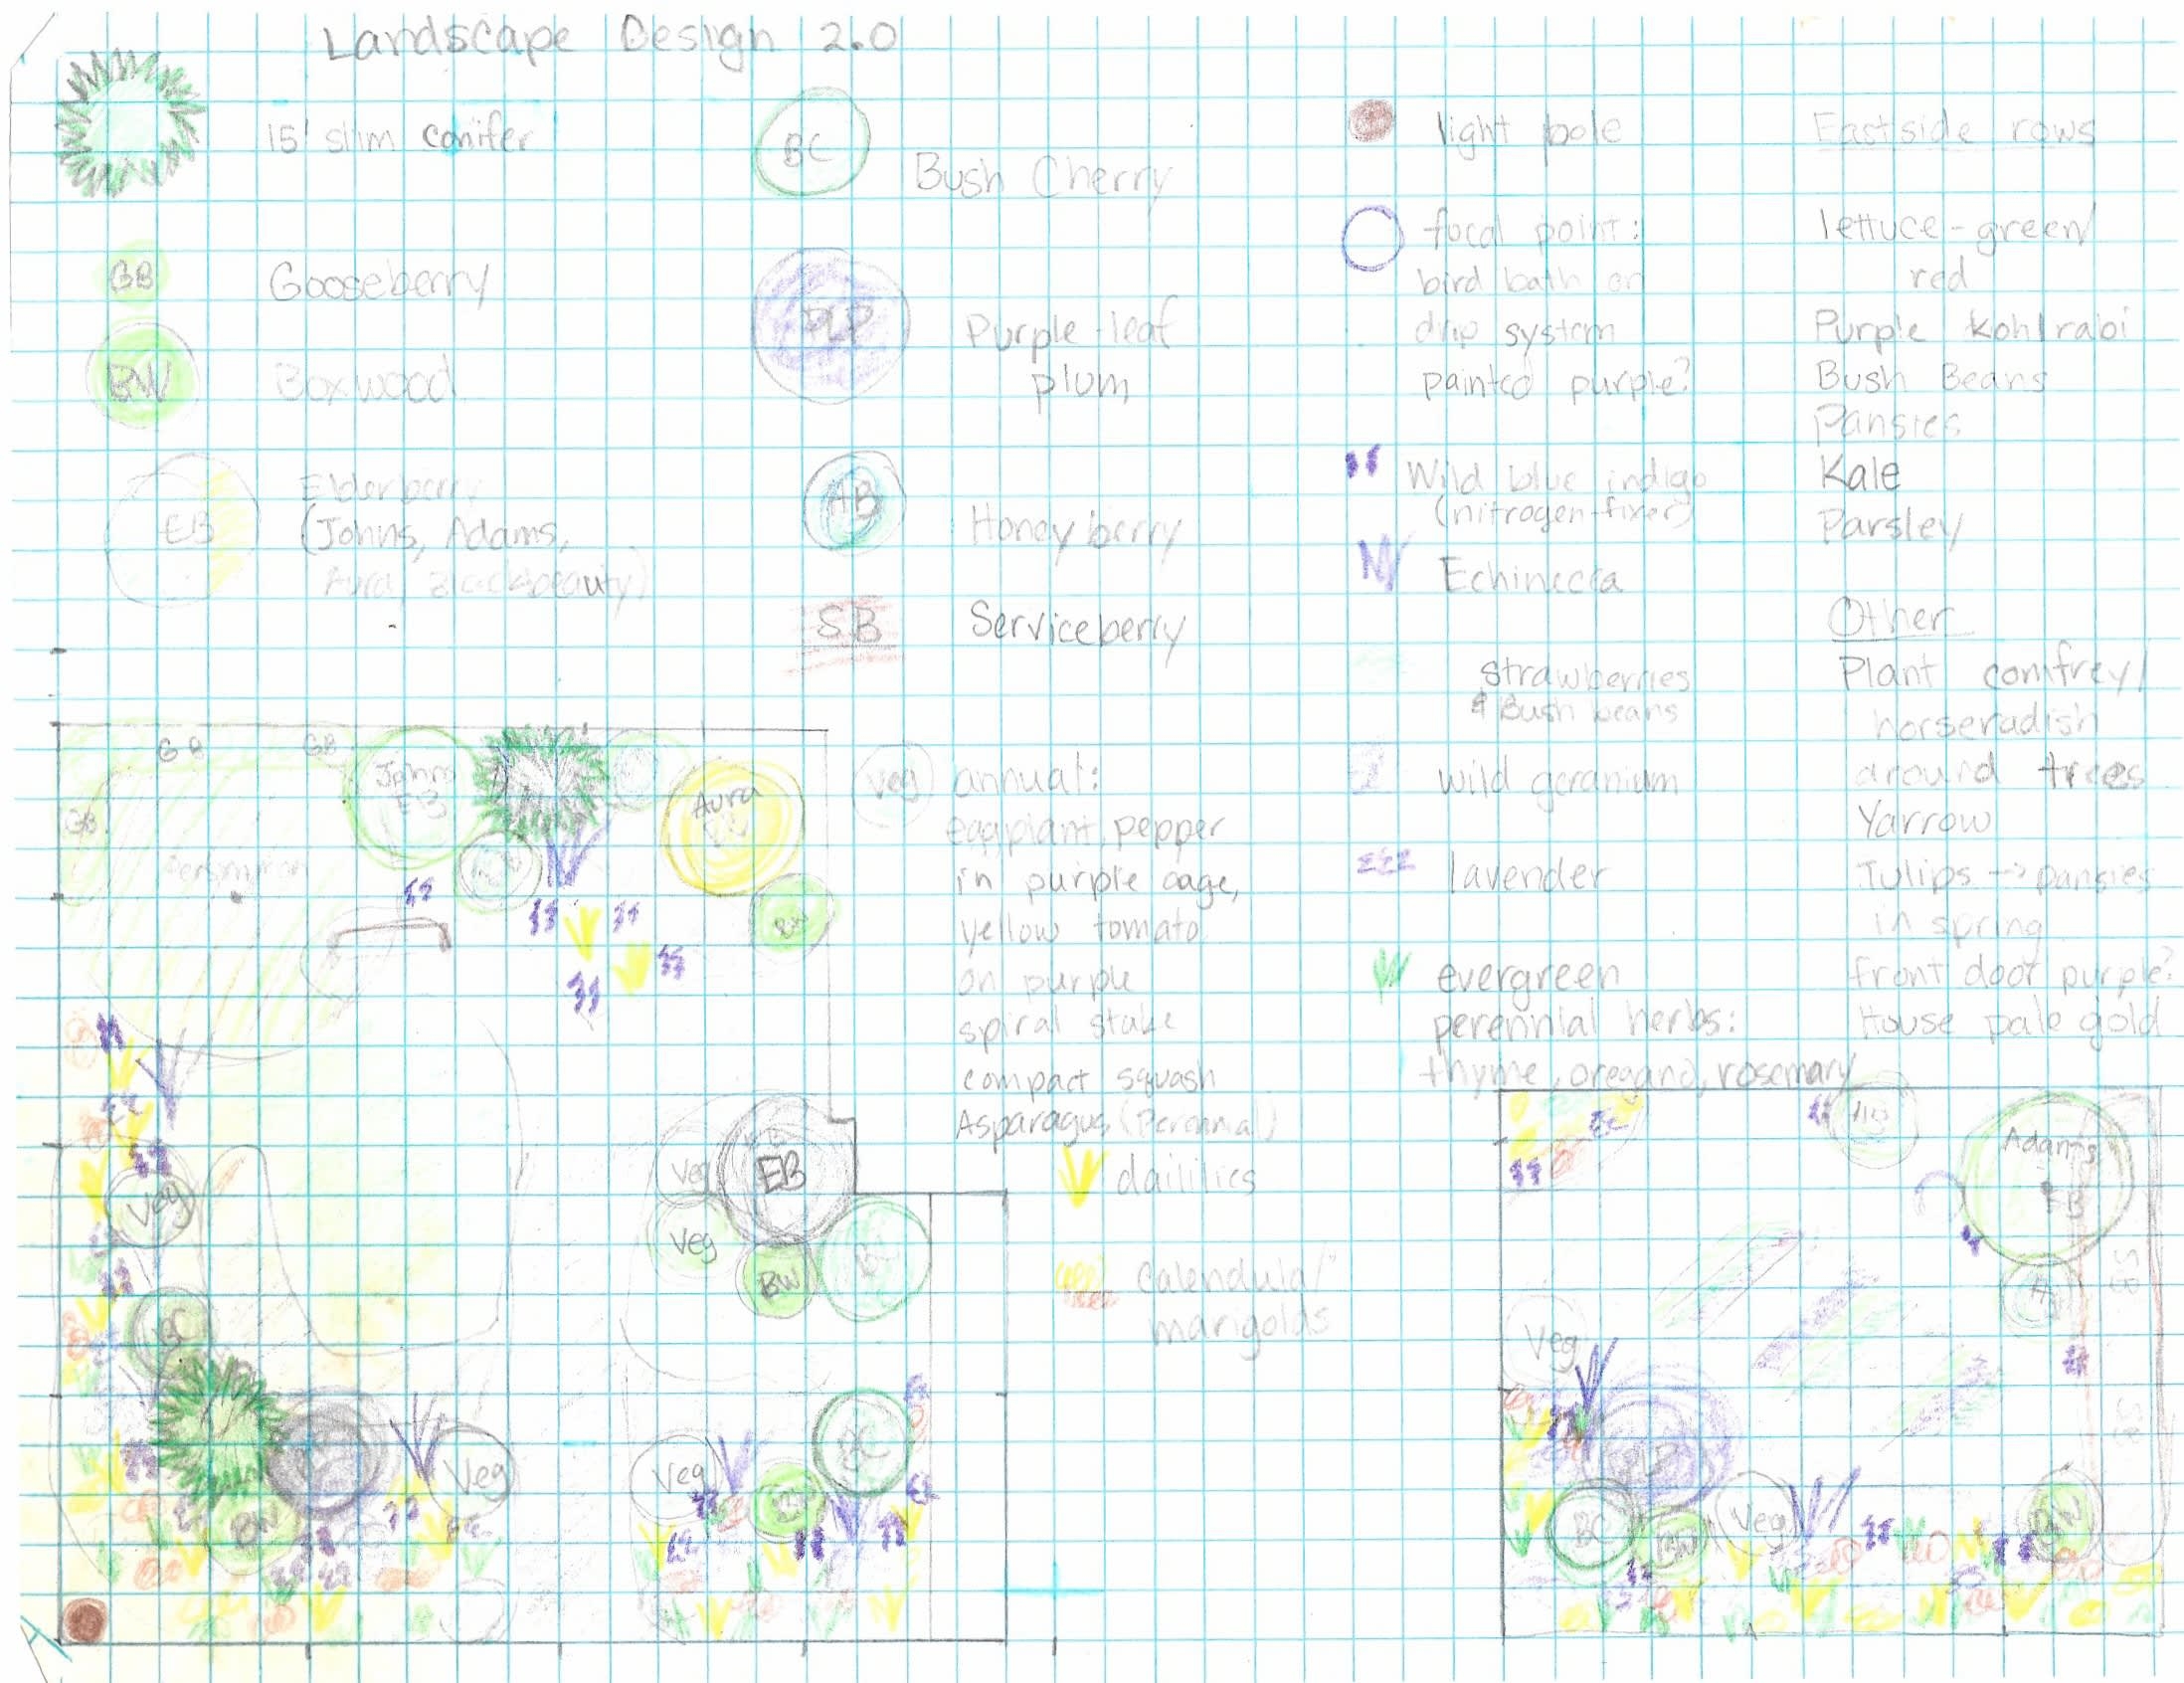 Landscape Design 2.0
15' slim conifer
GB
Gooseberry
BW
Boxwood
EB
Elderberry
(Johns, Adams,
Aura, Blackbeauty)
BC
Bush Cherry
PLP
Purple-leaf
plum
HB
Honeyberry
SB
Serviceberry
veg
annual:
eggplant, pepper
in purple cage,
yellow tomato
on purple
spiral stake
compact squash
Asparagus (Perennial)
daililies
Calendula/
marigolds
light pole
focal point:
bird bath on
drip system
painted purple?
Wild blue indigo
(nitrogen-fixer)
Echinecea
strawberries
& Bush beans
wild geranium
lavender
evergreen
perennial herbs:
thyme, oregano, rosemary
Eastside rows
lettuce-green/
red
Purple Kohlrabi
Bush Beans
Pansies
Kale
Parsley
Other
Plant comfrey/
horseradish
around trees
Yarrow
Tulips → pansies
in spring
front door purple?
House pale gold
GB
GB
GB
Johns
EB
Aura
persimmon
BW
Veg
BC
BW
Veg
Veg
EB
Veg
BW
Veg
BC
BW
HB
Adams
EB
SB
Veg
PLP
BC
BW
Veg
BW